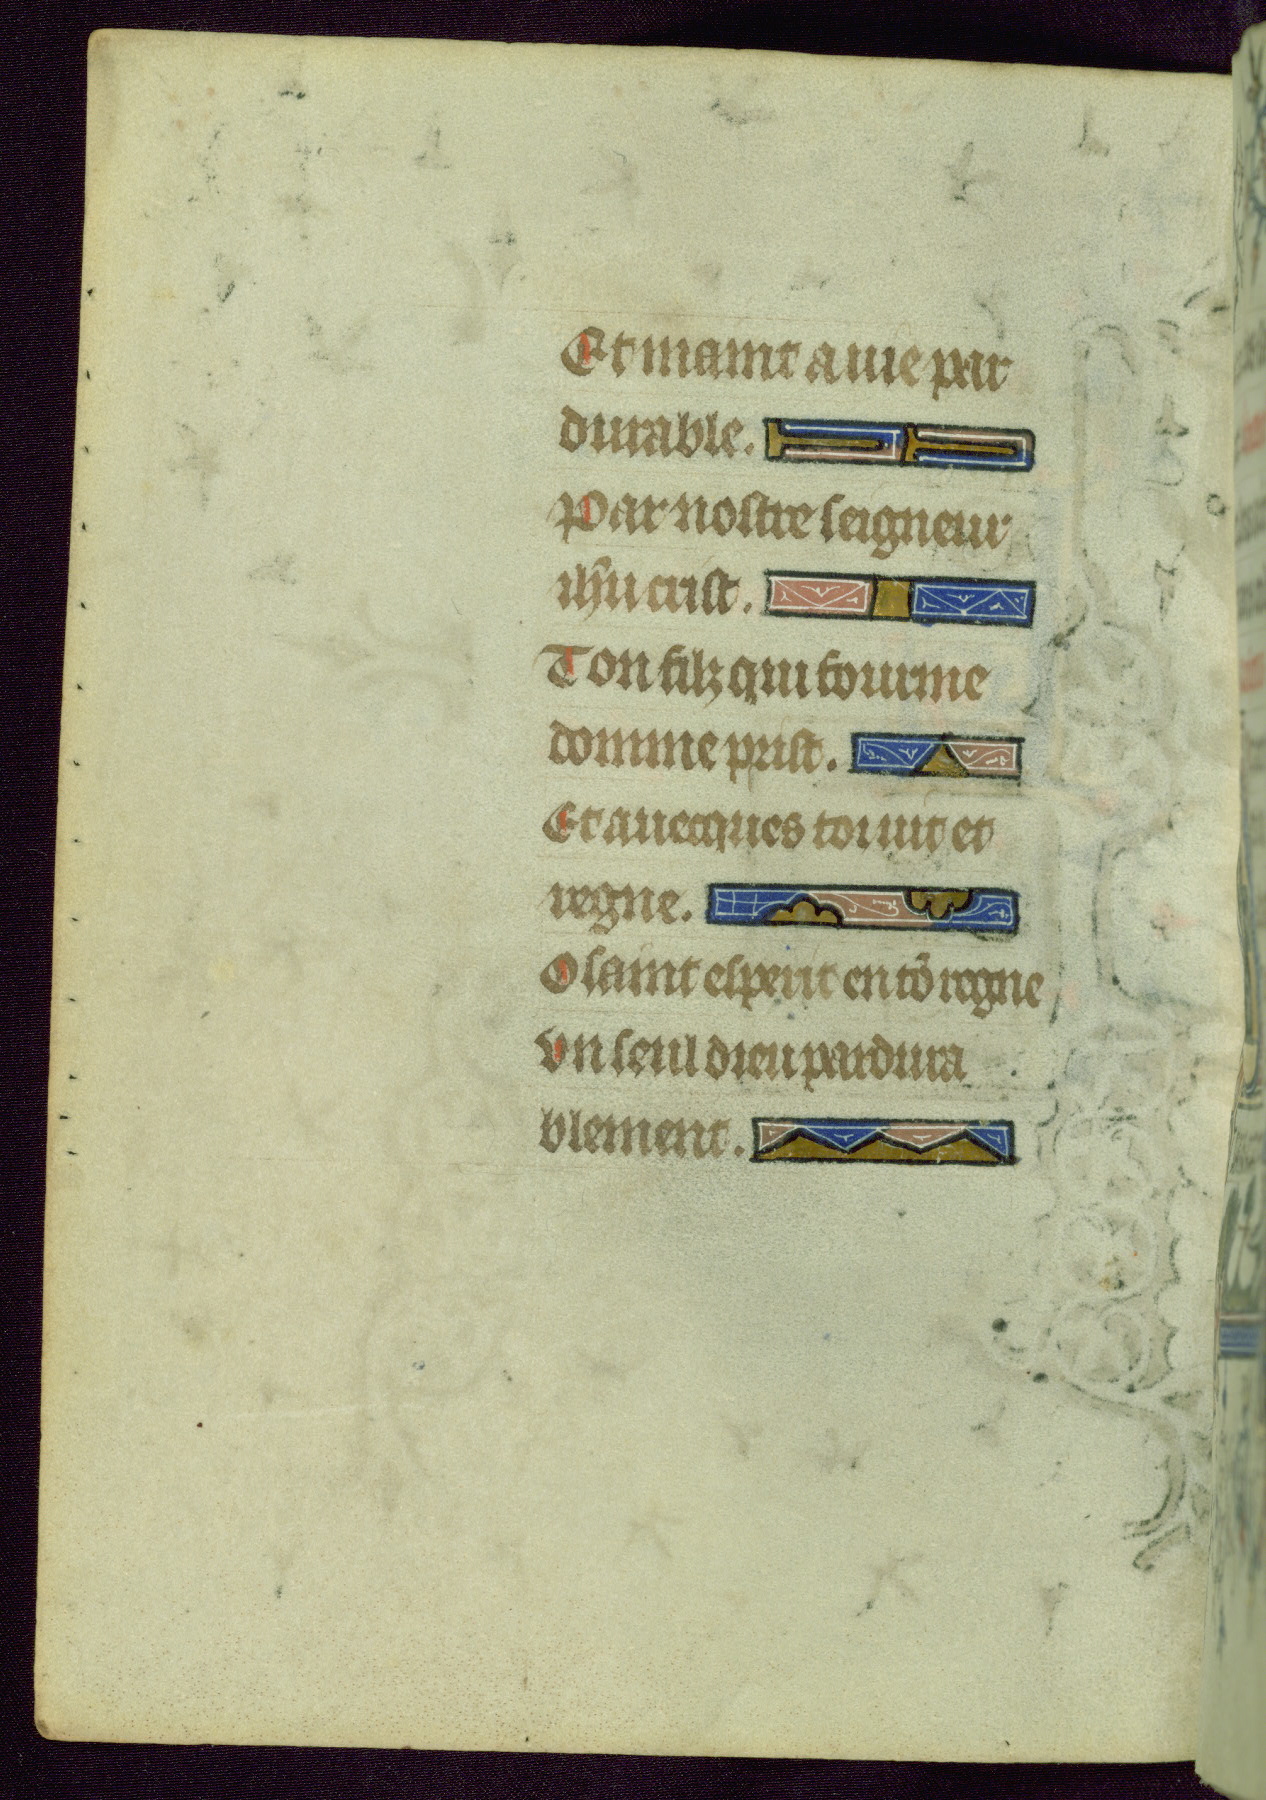 Et maint a uie par
durable.
Par nostre seigneur
ihũ crist.
Ton filz qui fourme
domme prist.
Et auecques toi uit et
regne.
O saint esperit en tõ regne
Vn seul dieu pardura
blement.